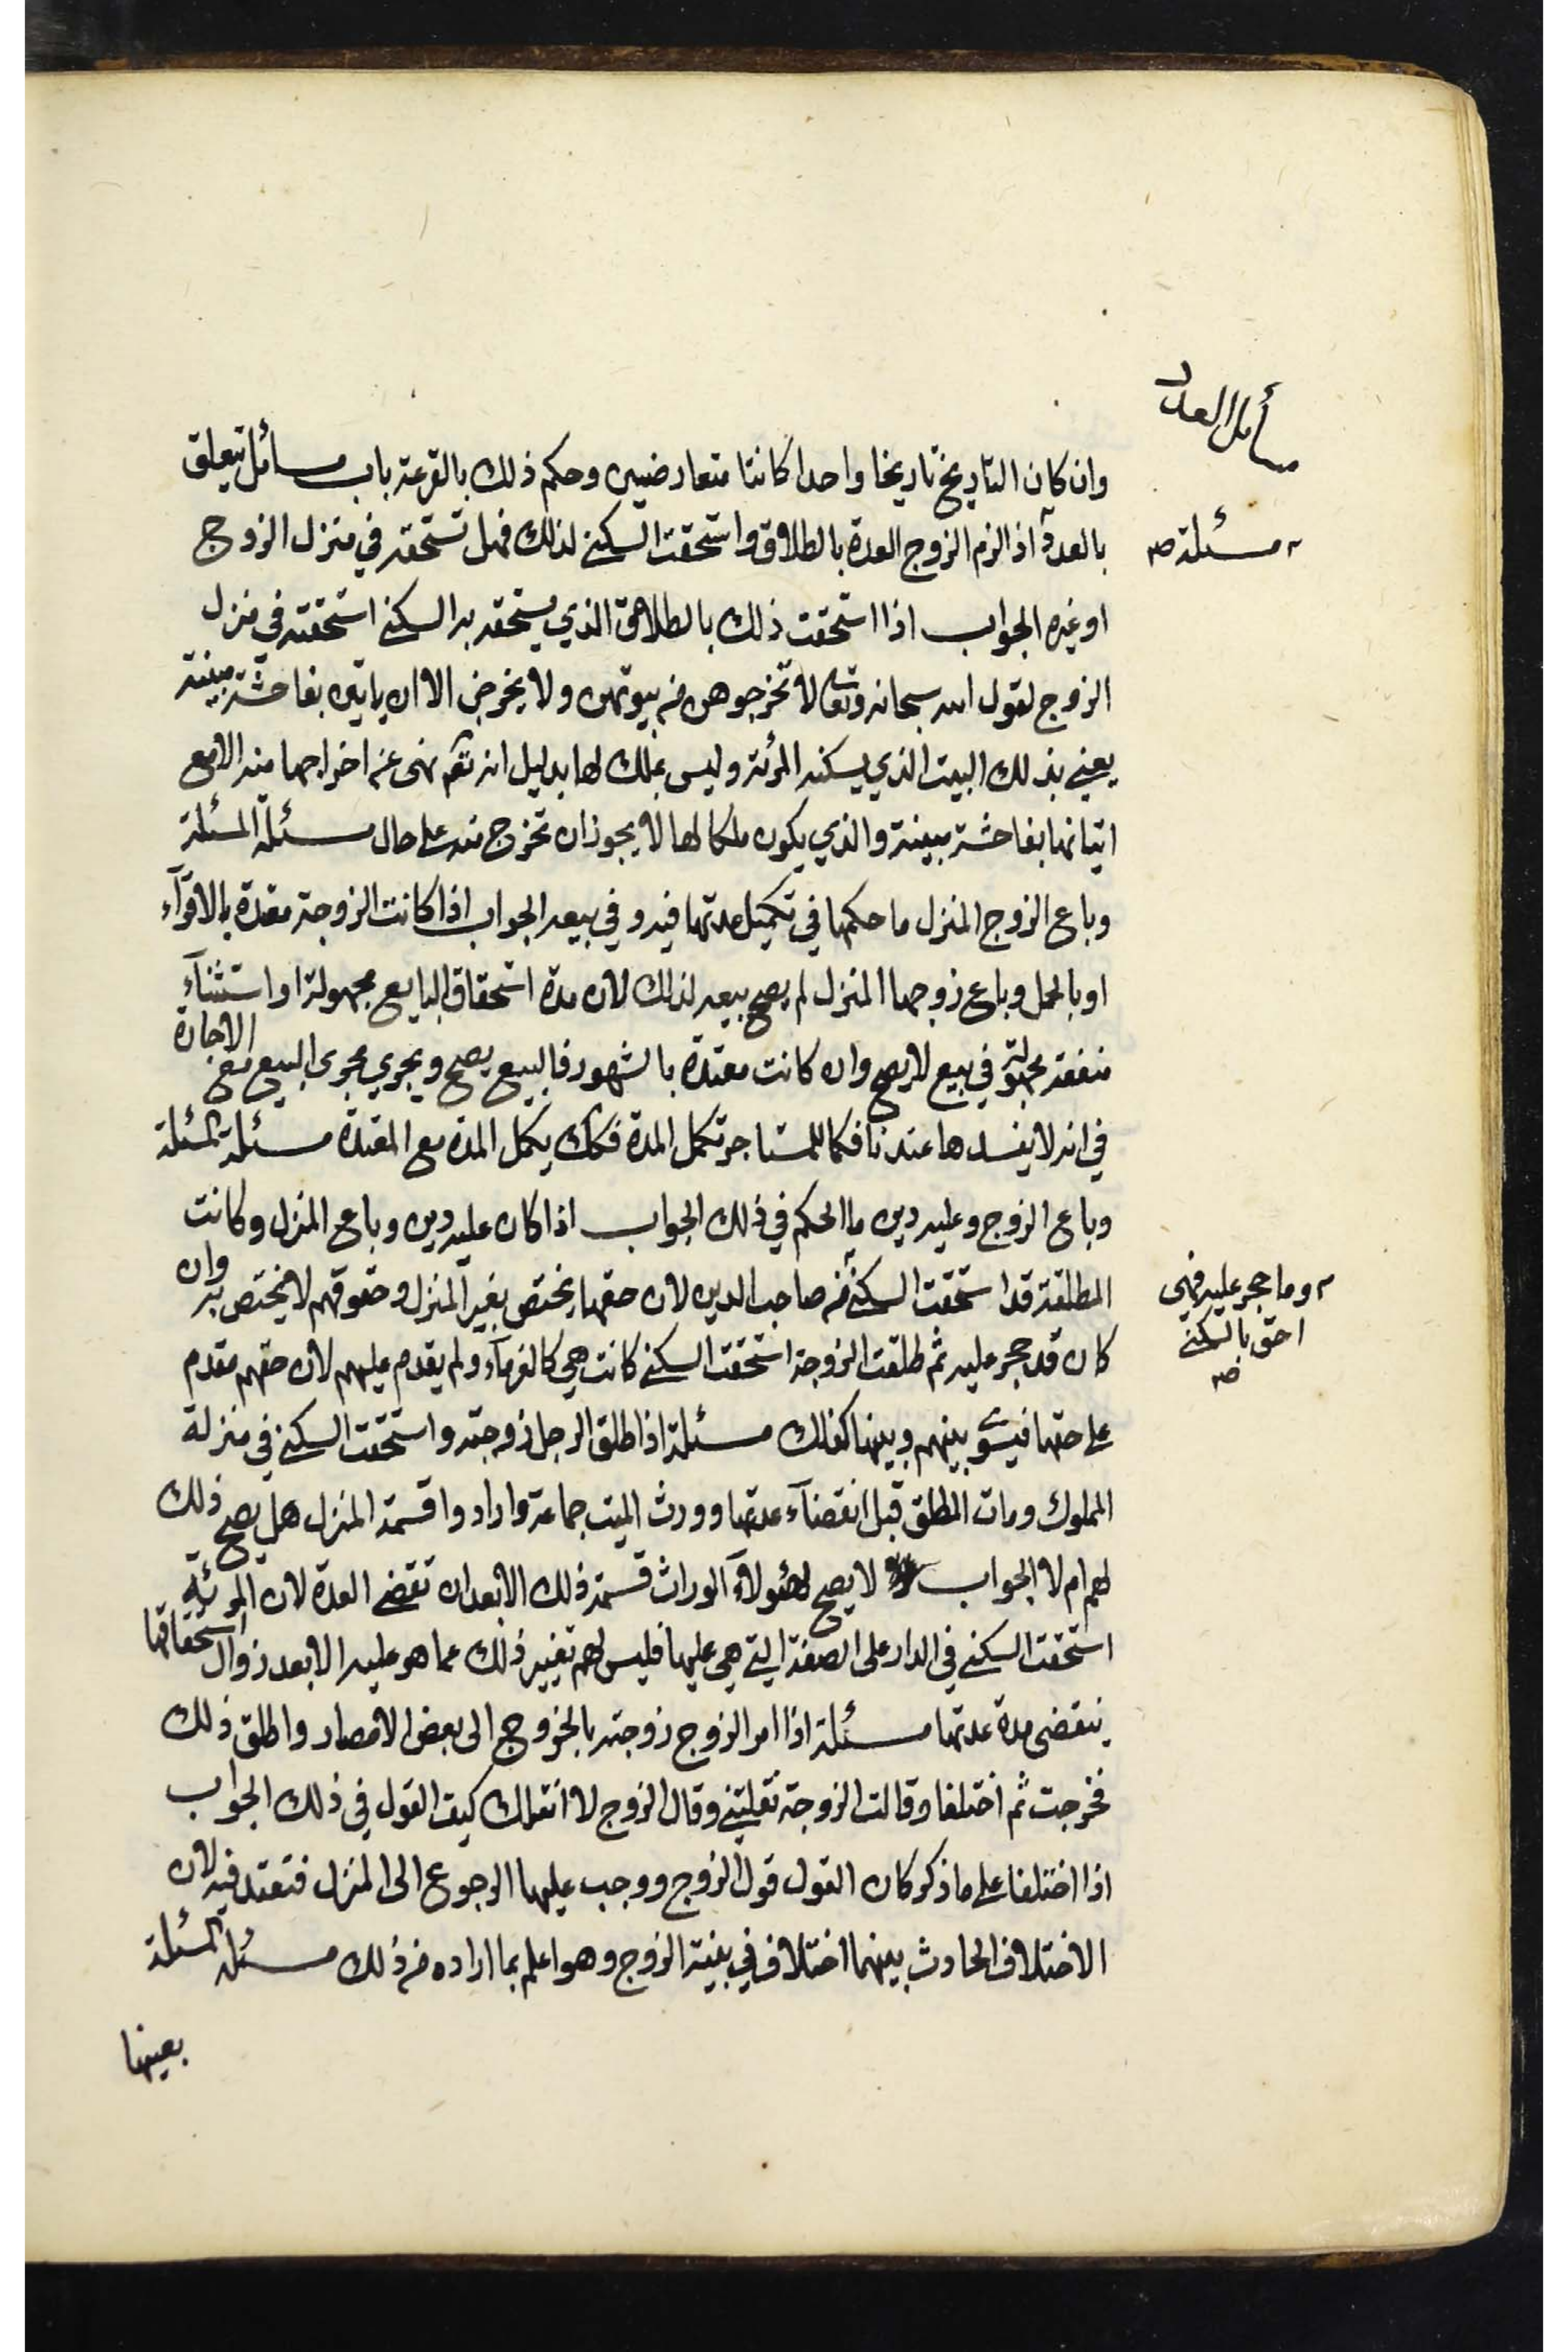 مسائل العدد
وان كان التاريخ تاريخا واحدا كانتا متعارضين وحكم ذلك بالقرعة باب مسائل تتعلق
مسئلة صح
بالعدة اذا الزم الزوج العدة بالطلاق واستحقت السكنى لذلك فهل تستحقه في منزل الزوج
او غيره الجواب اذا استحقت ذلك بالطلاق الذي يستحقه به السكنى استحقته في منزل
الزوج لقول الله سبحانه وتعالى لا تخرجوهن من بيوتهن ولا يخرجن الا ان ياتين بفاحشة مبينة
يعني بذلك البيت الذي يسكنه المرئة وليس بملك لها بدليل انه تعم نهى عن اخراجها منه الا مع
اتيانها بفاحشة مبينة والذي يكون ملكا لها لا يجوز ان تخرج منه على حال مسئلة المسئلة
وباع الزوج المنزل ما حكمها في تكميل عدتها فيه وفي بيعه الجواب اذا كانت الزوجة معتدة بالاقرآء
او بالحمل وباع زوجها المنزل لم يصح بيعه لذلك لان مدة استحقاق البايع مجهولة او استثنآء
منفعة مجهولة في بيع لا يصح وان كانت معتدة بالشهور فالبيع يصح ويجري مجرى البيع مع الاجارة
في انه لا يفسدها عندنا فكما للمستاجر تكمل المدة فكك يكمل المدة مع المعتدة مسئلة المسئلة
وباع الزوج وعليه دين ما الحكم في ذلك الجواب اذا كان عليه دين وباع المنزل وكانت
المطلقة قد استحقت السكنى من صاحب الدين لان حقها يختص بغير المنزل وحقوقهم لا يختص به وان
وما حجر عليه فهي
احق بالسكنى
صح
كان قد حجر عليه ثم طلقت الزوجة استحقت السكنى كانت هي كالغرمآء ولم يقدم عليهم لان حقهم مقدم
على حقها فيسوى بينهم وبينها كذلك مسئلة اذا طلق الرجل زوجته واستحقت السكنى في منزله
المملوك ومات المطلق قبل انقضآء عدتها وورث الميت جماعة وارادوا قسمة المنزل هل يصح ذلك
لهم ام لا الجواب لا يصح لهؤلآء الوراث قسمة ذلك الا بعد ان تقضى العدة لان المرئة
استحقت السكنى في الدار على الصفة التي هي عليها فليس لهم تغيير ذلك عما هو عليه الا بعد زوال استحقاقها
ينقضى مدة عدتها مسئلة اذا امر الزوج زوجته بالخروج الى بعض الامصار واطلق ذلك
فخرجت ثم اختلفا وقالت الزوجة نقلتني وقال الزوج لا انقلك كيف القول في ذلك الجواب
اذا اختلفا على ما ذكر كان القول قول الزوج ووجب عليها الرجوع الى المنزل فتعتد فيه لان
الاختلاف الحادث بينهما اختلاف في بنية الزوج وهو اعلم بما اراده من ذلك مسئلة المسئلة
بعينها